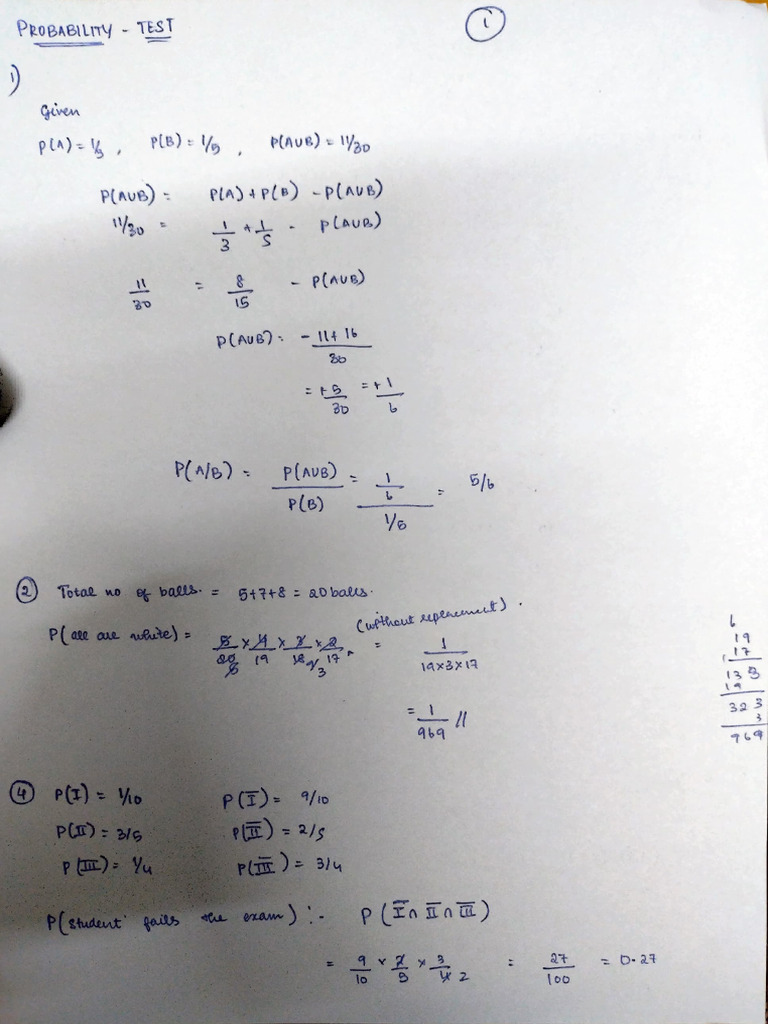 PROBABILITY - TEST
1
1)
Given
P(A) = 1/3 , P(B) = 1/5 , P(A∪B) = 11/30
P(A∪B) = P(A) + P(B) - P(A∪B)
11/30 = 1/3 + 1/5 - P(A∪B)
11/30 = 8/15 - P(A∪B)
P(A∪B) = -11+16/30
= +5/30 = +1/6
P(A/B) = P(A∪B)/P(B) = 1/6 / 1/5 = 5/6
2 Total no of balls. = 5+7+8 = 20 balls.
P(all are white) = 5/20 × 4/19 × 3/18 × 2/17 (without replacement). = 1/19×3×17
= 1/969 //
6
19
17
133
19
323
3
969
4 P(I) = 1/10 P(I̅) = 9/10
P(II) = 3/5 P(I̅I̅) = 2/5
P(III) = 1/4 P(I̅I̅I̅) = 3/4
P(student fails the exam) :- P(I̅ ∩ I̅I̅ ∩ I̅I̅I̅)
= 9/10 × 2/5 × 3/4 2 = 27/100 = 0.27